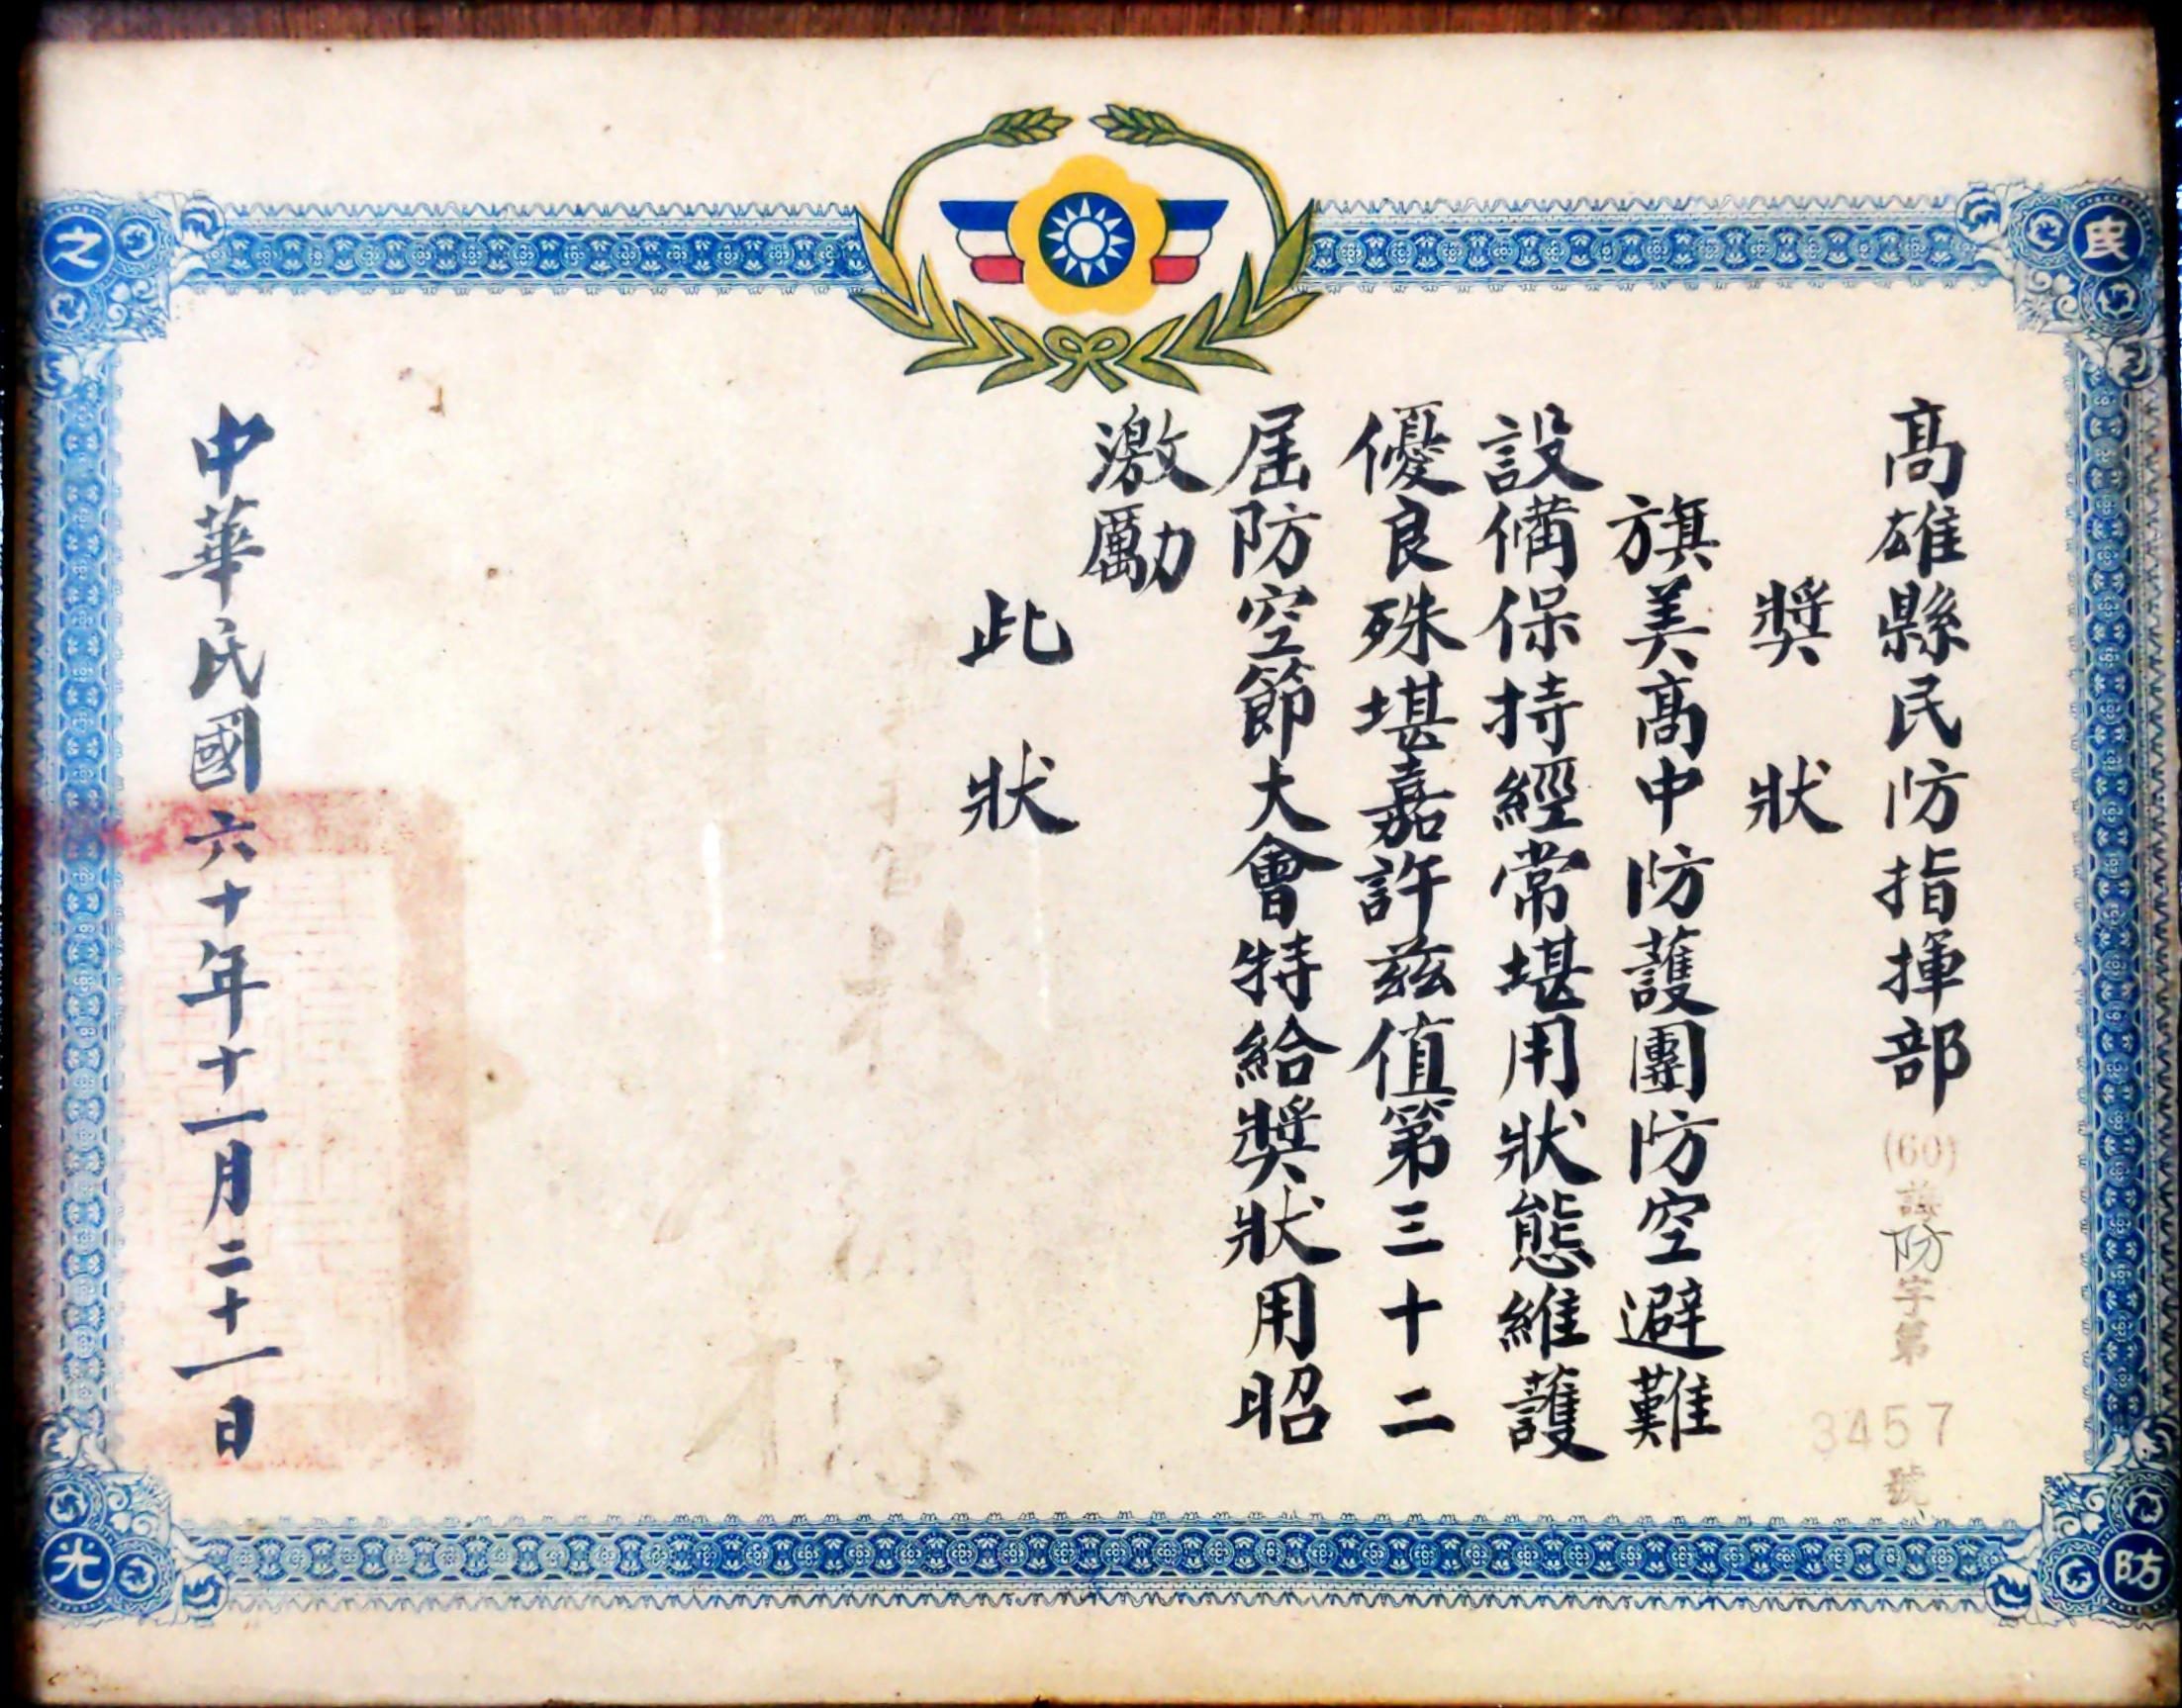 民防之光
高雄縣民防指揮部
(60)
防字第
3457
號
獎狀
旗美高中防護團防空避難
設備保持經常堪用狀態維護
優良殊堪嘉許茲值第三十二
屆防空節大會特給獎狀用昭
激勵
此狀
中華民國六十年十一月二十一日